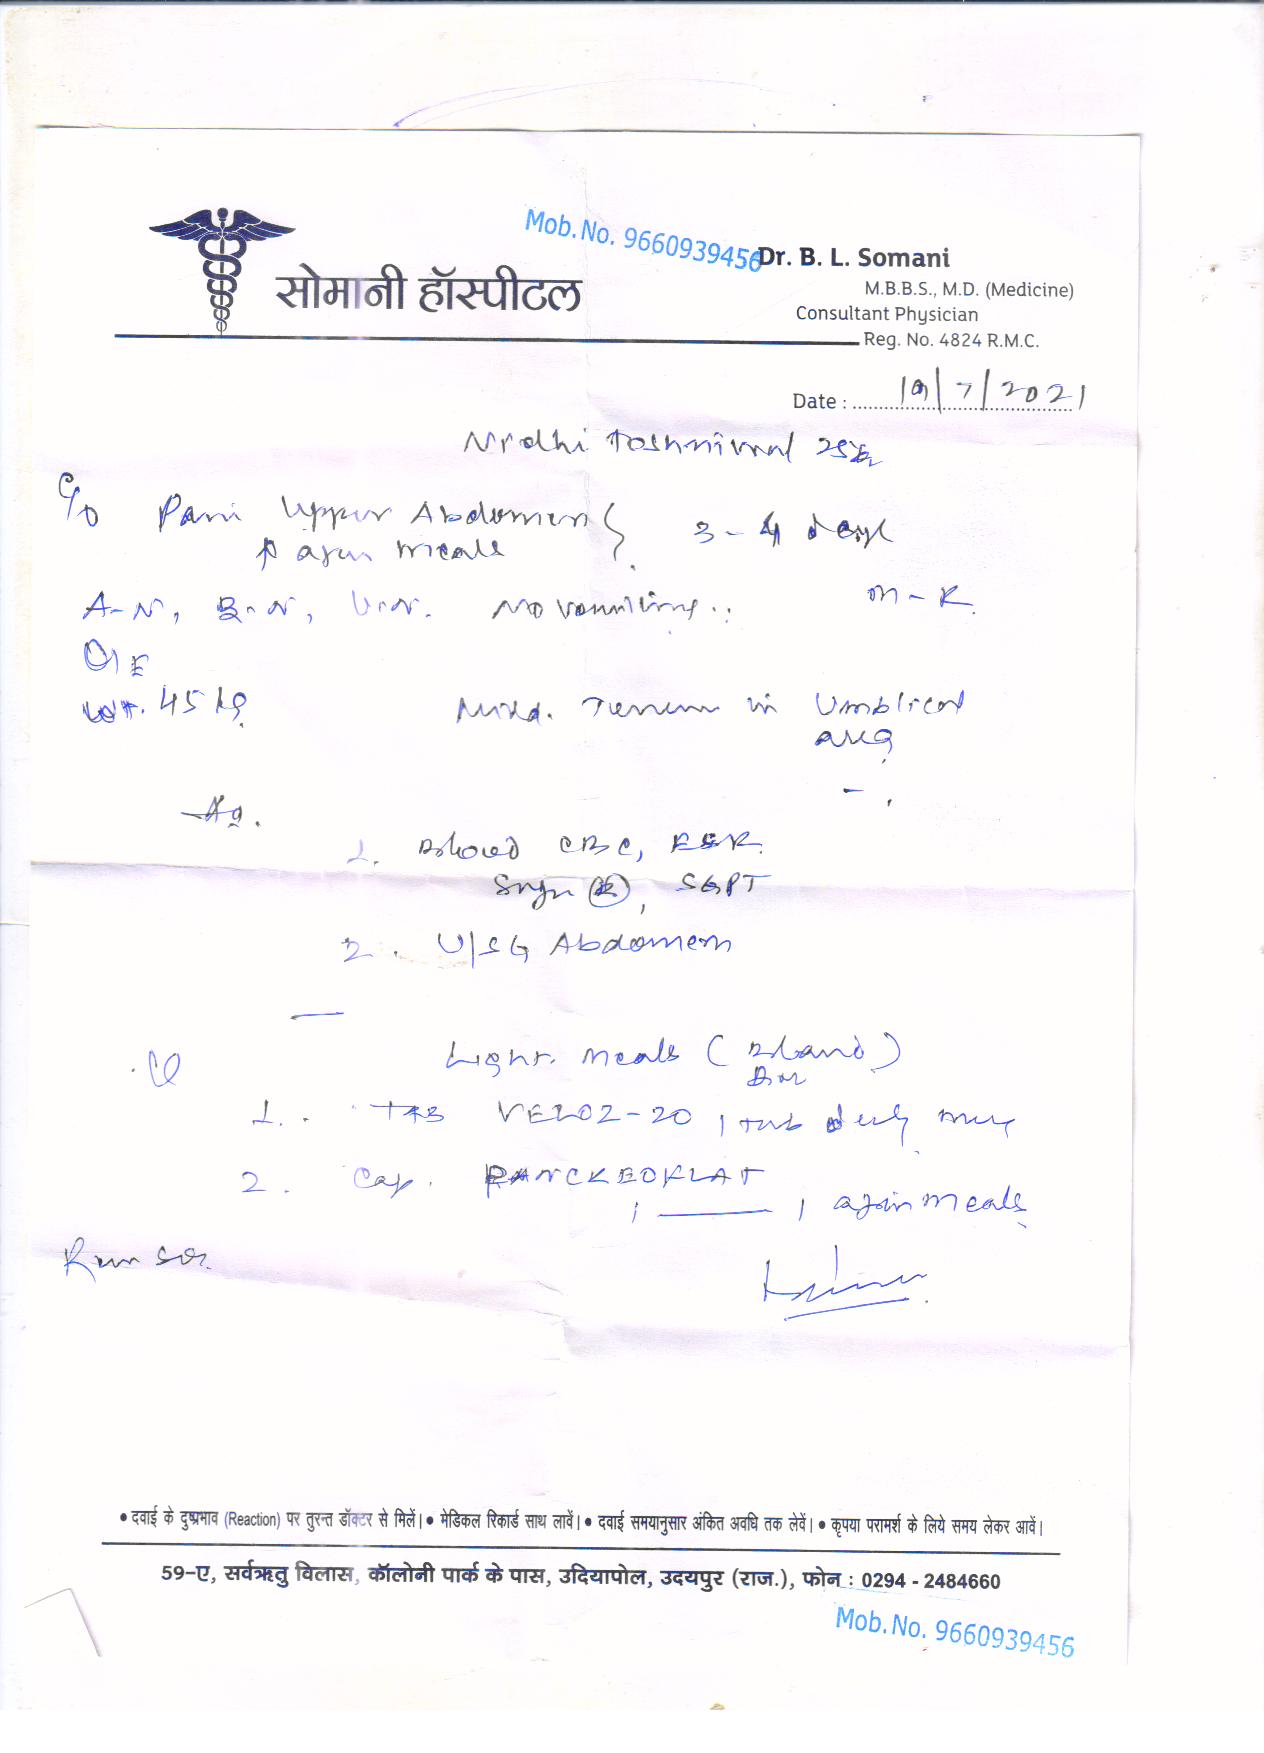 Mob. No. 9660939456
सोमानी हॉस्पीटल
Dr. B. L. Somani
M.B.B.S., M.D. (Medicine)
Consultant Physician
Reg. No. 4824 R.M.C.
Date : 19/7/2021
Toshniwal
C/o Pain Upper Abdomen } 3-4 days
after meals
A-N, B-N, U-N. No vomiting..
O/E
Wt. 45 kg
Mild. in Umblical
area
1. Blood CBC, ESR.
Sugar (R), SGPT
2. U/SG Abdomen
Light. meals (Bland)
1. TAB VELOZ-20 1 tab daily
2. Cap. 1 1 after meals
• दवाई के दुष्प्रभाव (Reaction) पर तुरन्त डॉक्टर से मिलें। • मेडिकल रिकार्ड साथ लावें। • दवाई समयानुसार अंकित अवधि तक लेवें। • कृपया परामर्श के लिये समय लेकर आवें।
59-ए, सर्वऋतु विलास, कॉलोनी पार्क के पास, उदियापोल, उदयपुर (राज.), फोन : 0294 - 2484660
Mob. No. 9660939456